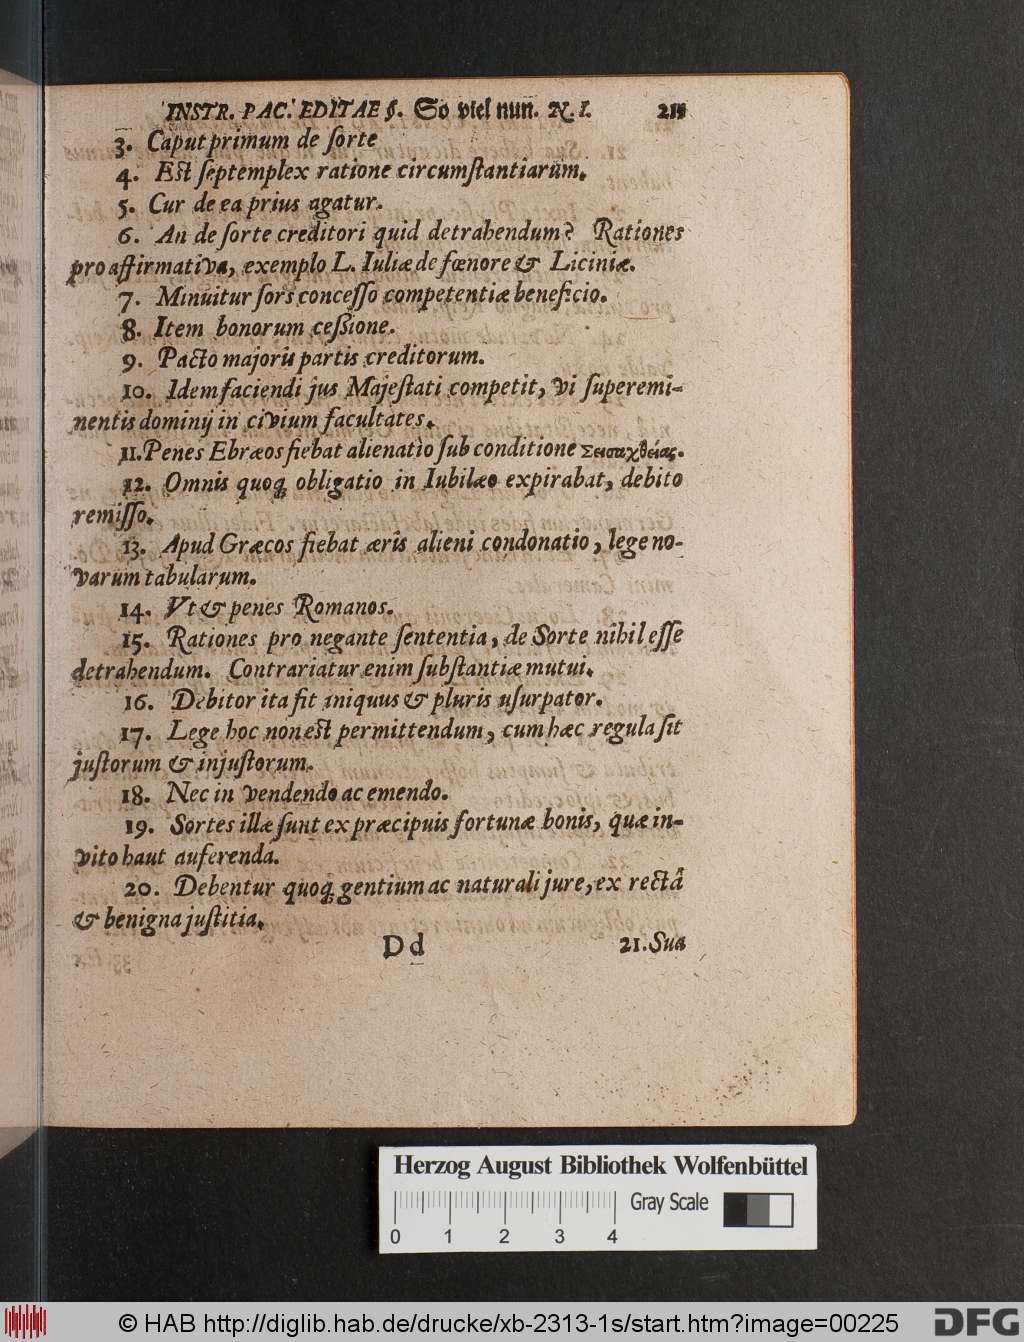 INSTR. PAC. EDITAE §. So viel nun. N. I.
3. Caput primum de sorte
4. Est septemplex ratione circumstantiarum.
5. Cur de ea prius agatur.
6. An de sorte creditori quid detrahendum? Rationes
pro affirmativa, exemplo L. Iuliæ de fœnore & Liciniæ.
7. Minuitur sors concesso competentiæ beneficio.
8. Item bonorum cessione.
9. Pacto majoris partis creditorum.
10. Idem faciendi jus Majestati competit, vi superemi-
nentis dominij in civium facultates.
11. Penes Ebræos fiebat alienatio sub conditione Σεισαχθείας.
12. Omnis quoq; obligatio in Iubilæo expirabat, debito
remisso.
13. Apud Græcos fiebat æris alieni condonatio, lege no-
varum tabularum.
14. Vt & penes Romanos.
15. Rationes pro negante sententia, de Sorte nihil esse
detrahendum. Contrariatur enim substantiæ mutui.
16. Debitor ita fit iniquus & pluris usurpator.
17. Lege hoc non est permittendum, cum hæc regula sit
justorum & injustorum.
18. Nec in vendendo ac emendo.
19. Sortes illæ sunt ex præcipuis fortunæ bonis, quæ in-
vito haut auferenda.
20. Debentur quoq; gentium ac naturali jure, ex rectâ
& benigna justitia.
Dd 21. Sua
Herzog August Bibliothek Wolfenbüttel
Gray Scale
0 1 2 3 4
© HAB http://diglib.hab.de/drucke/xb-2313-1s/start.htm?image=00225
DFG